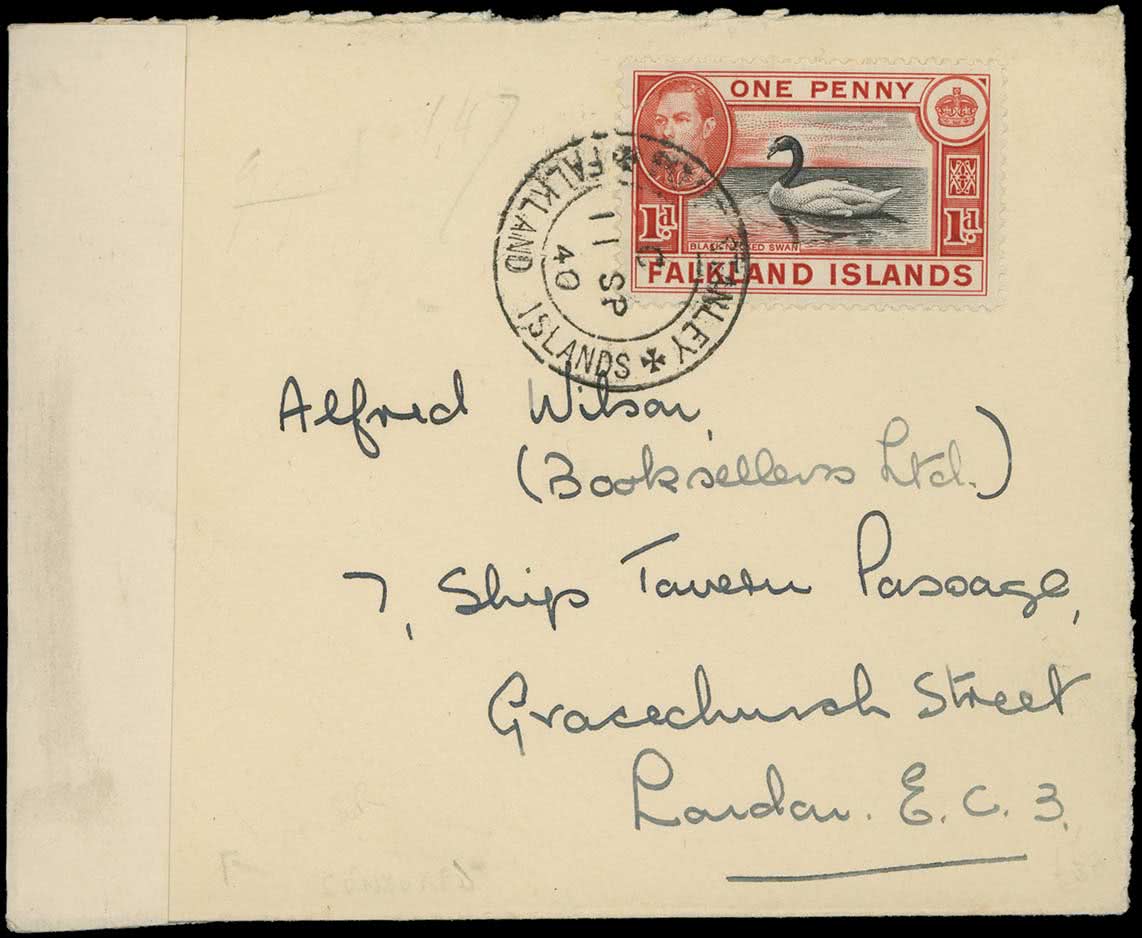 147
ONE PENNY
1d 1d
BLACK-NECKED SWAN
FALKLAND ISLANDS
STANLEY
FALKLAND ISLANDS
C
11 SP
40
Alfred Wilson,
(Booksellers Ltd.)
7, Ships Tavern Passage,
Gracechurch Street
London. E.C. 3.